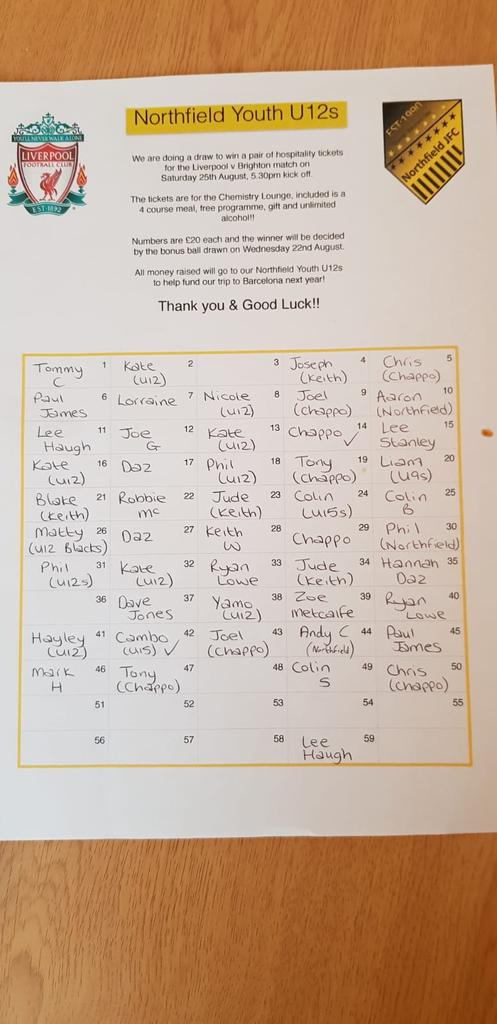 YOU'LL NEVER WALK ALONE
LIVERPOOL
FOOTBALL CLUB
EST·1892
EST·1990
Northfield JFC
Northfield Youth U12s
We are doing a draw to win a pair of hospitality tickets
for the Liverpool v Brighton match on
Saturday 25th August, 5.30pm kick off.
The tickets are for the Chemistry Lounge, included is a
4 course meal, free programme, gift and unlimited
alcohol!!
Numbers are £20 each and the winner will be decided
by the bonus ball drawn on Wednesday 22nd August.
All money raised will go to our Northfield Youth U12s
to help fund our trip to Barcelona next year!
Thank you & Good Luck!!
Tommy C 1 Kate (U12) 2 3 Joseph (Keith) 4 Chris (Chappo) 5
Paul James 6 Lorraine 7 Nicole (U12) 8 Joel (Chappo) 9 Aaron (Northfield) 10
Lee Haugh 11 Joe G 12 Kate (U12) 13 Chappo ✓ 14 Lee Stanley 15
Kate (U12) 16 Daz 17 Phil (U12) 18 Tony (Chappo) 19 Liam (U9s) 20
Blake (Keith) 21 Robbie Mc 22 Jude (Keith) 23 Colin (U15s) 24 Colin B 25
Matty (U12 Blacks) 26 Daz 27 Keith W 28 Chappo 29 Phil (Northfield) 30
Phil (U12s) 31 Kate (U12) 32 Ryan Lowe 33 Jude (Keith) 34 Hannah Daz 35
36 Dave Jones 37 Yamo (U12) 38 Zoe Metcalfe 39 Ryan Lowe 40
Hayley (U12) 41 Cambo (U15) ✓ 42 Joel (Chappo) 43 Andy C (Northfield) 44 Paul James 45
Mark H 46 Tony (Chappo) 47 48 Colin S 49 Chris (Chappo) 50
51 52 53 54 55
56 57 58 Lee Haugh 59